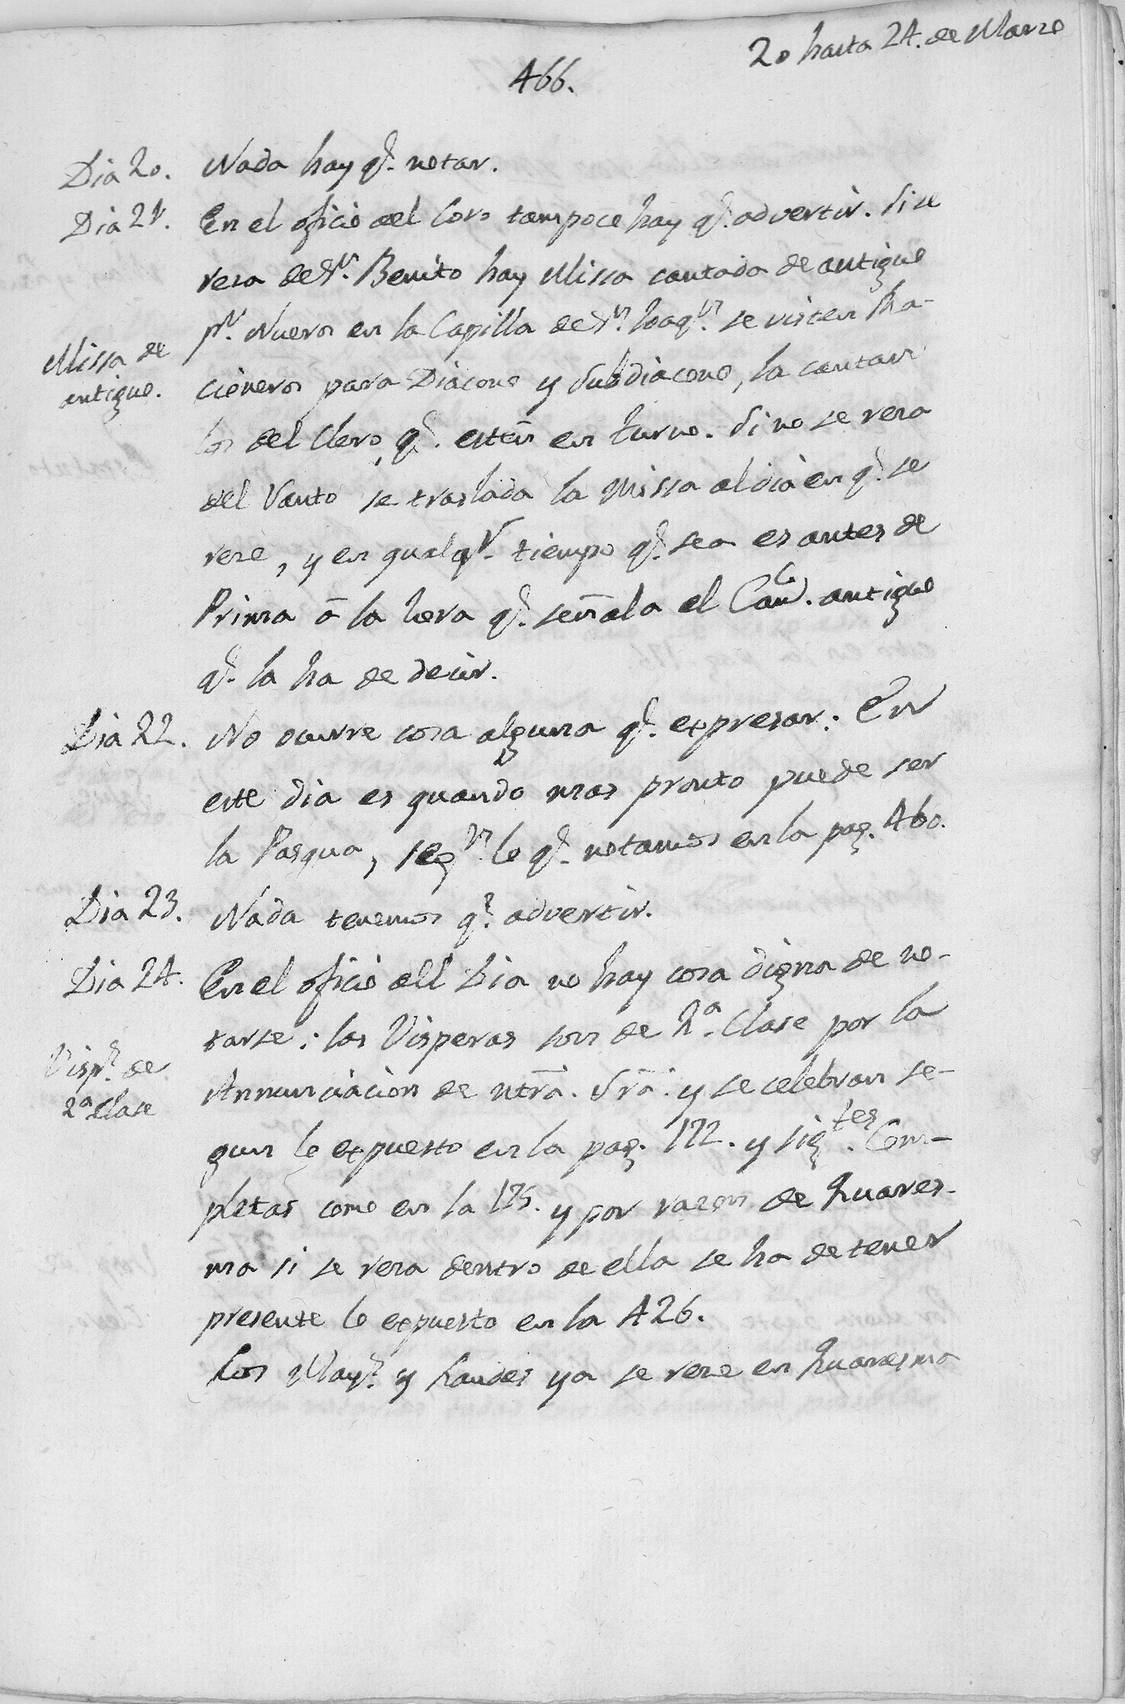 20 hasta 24. de Marzo
466.
Dia 20. Nada hay q.e notar.
Dia 21. En el oficio del Coro tampoco hay q.e advertir. Si se
reza de S.n Benito hay Missa cantada de antiguo
p.r Nueros en la Capilla de S.n Joaq.n se visten Ra-
Missa de
antiguo.
cioneros para Diacono y Subdiacono, la cantan
los del Clero, q.e estàn en turno. Si no se reza
del Santo se traslada la Missa al dia en q.e se
reze, y en qualq.r tiempo q.e sea es antes de
Prima à la hora q.e señala el Can.co antiguo
q.e la ha de decir.
Dia 22. No ocurre cosa alguna q.e expresar. En
este dia es quando mas pronto puede ser
la Pasqua, seg.n lo q.e notamos en la pag. 460.
Dia 23. Nada tenemos q.e advertir.
Dia 24. En el oficio dell Dia no hay cosa digna de no-
tarse: las Visperas son de 2.a Clase por la
Visp.s de
2.a Clase
Annunciacion de ntrã. Srã. y se celebran se-
gun lo expuesto en la pag. 172. y sig.tes Com-
pletas como en la 175. y por razon de Quares-
ma si se reza dentro de ella se ha de tener
presente lo expuesto en la 426.
Los May.s y Laudes ya se reze en Quaresma